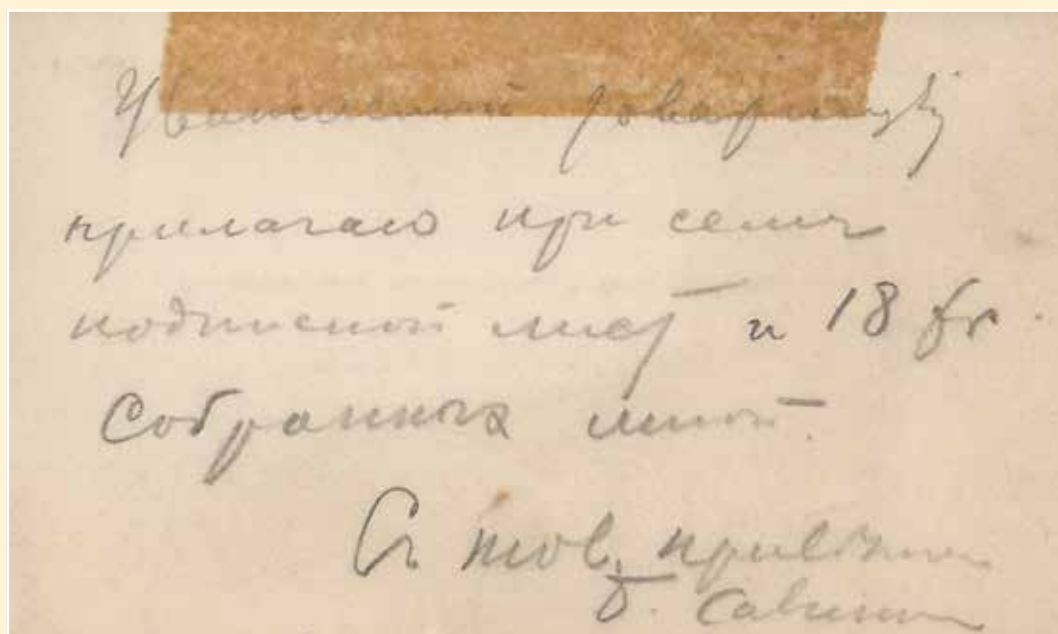 Уважаемый товарищъ
прилагаю при семъ
подписной лист и 18 fr.
собранных мной.
Съ тов. приветом
Б. Савинков